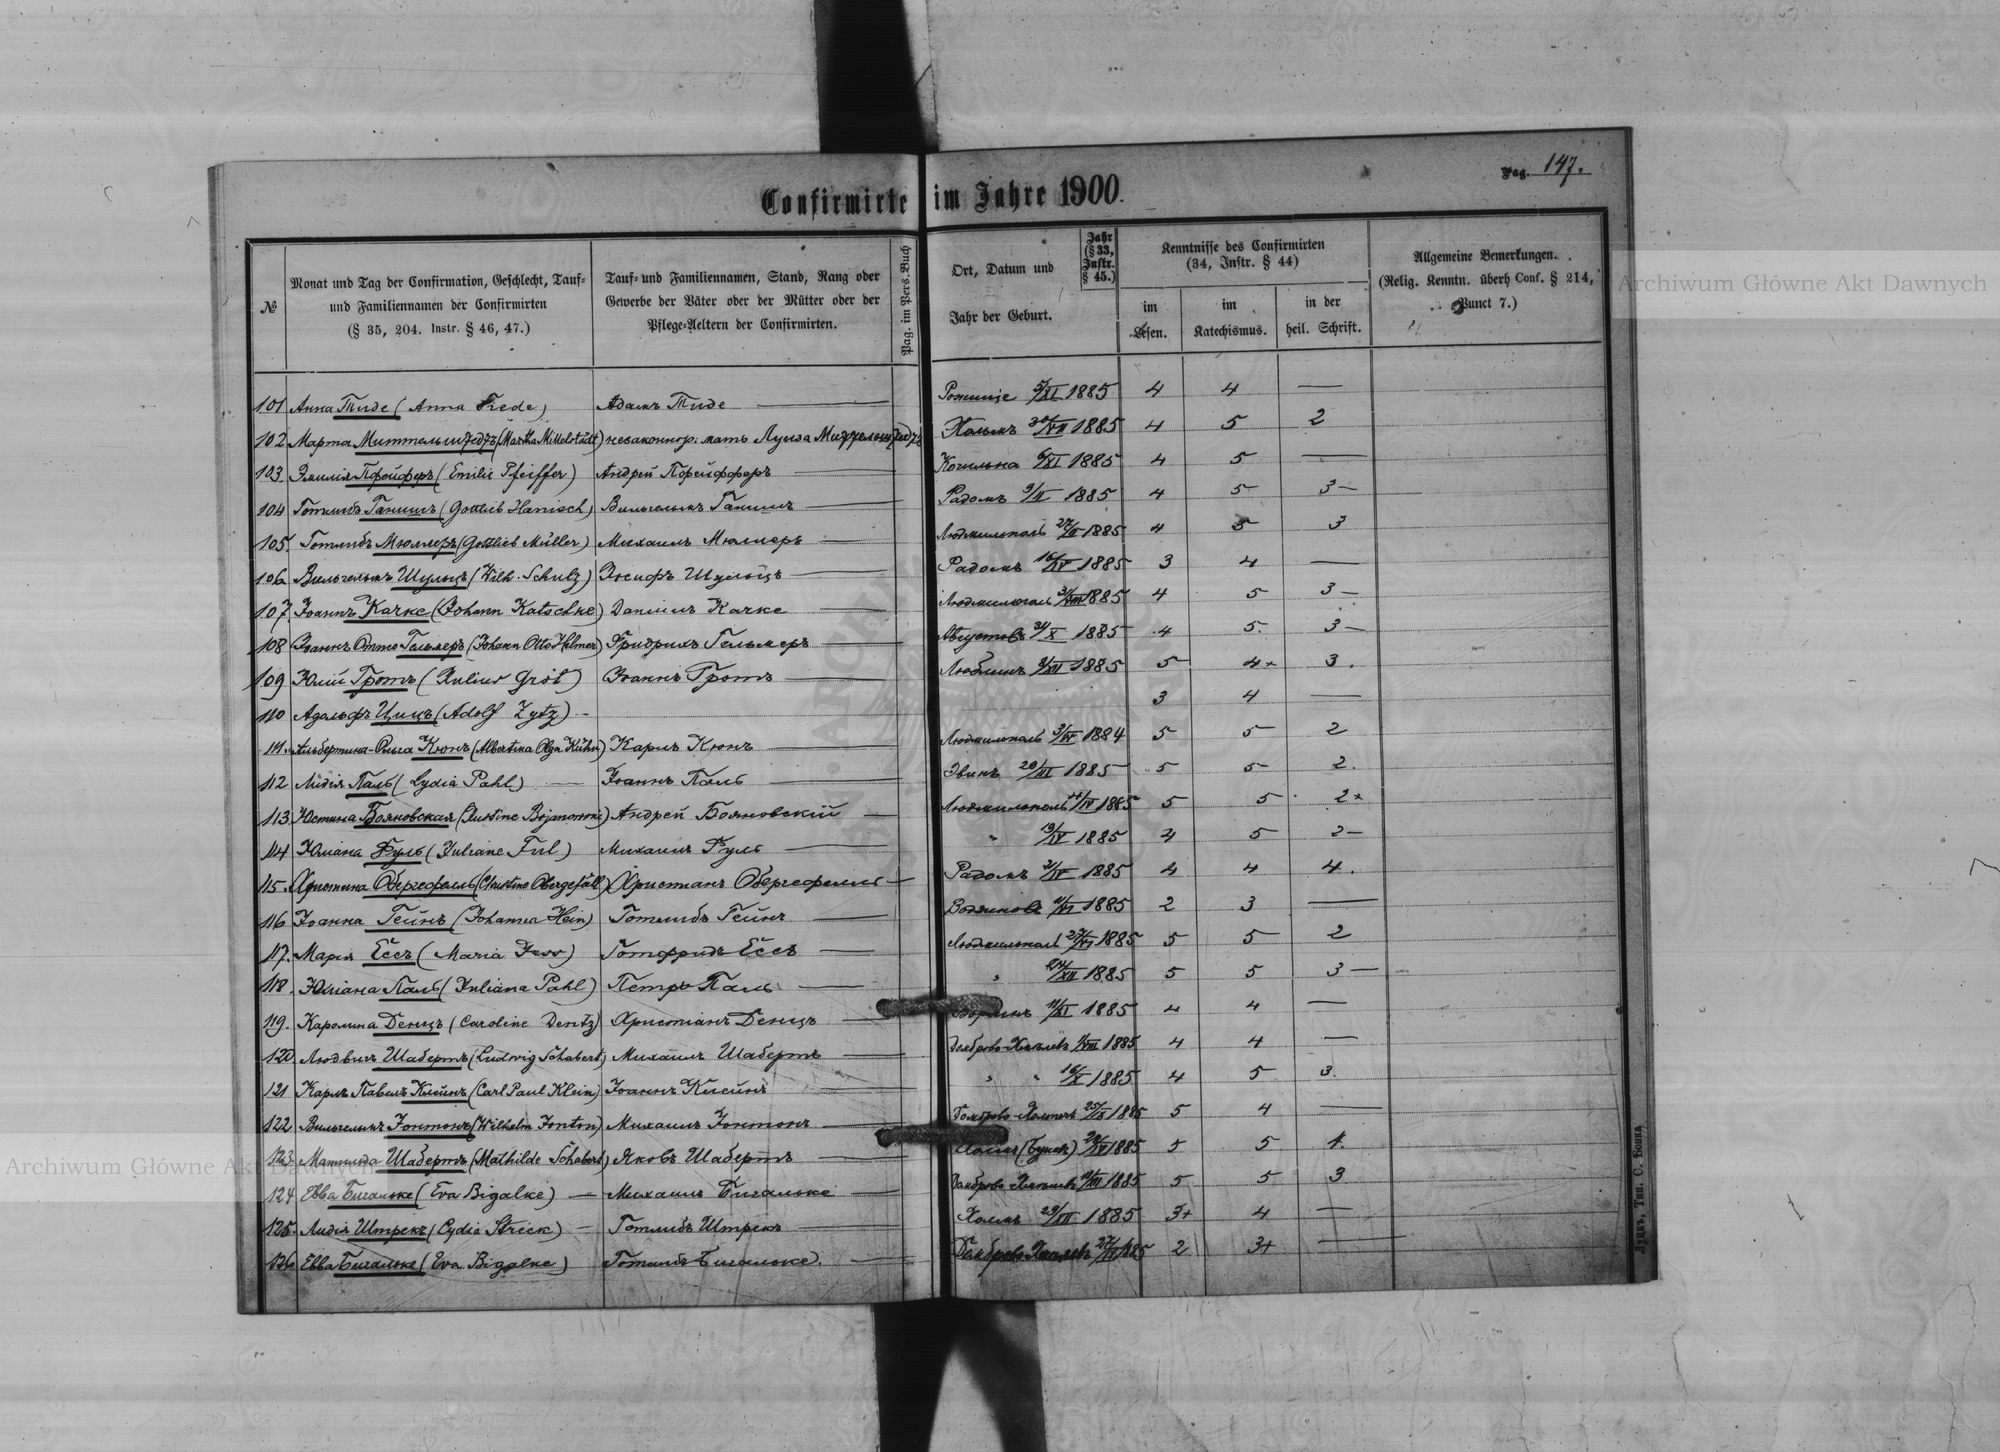 Pag. 147.
Confirmirte im Jahre 1900.
№
Monat und Tag der Confirmation, Geschlecht, Tauf- und Familiennamen der Confirmirten (§ 35, 204. Instr. § 46, 47.)
Tauf- und Familiennamen, Stand, Rang oder Gewerbe der Väter oder der Mütter oder der Pflege-Aeltern der Confirmirten.
Pag. im Pers. Buch
Ort, Datum und Jahr der Geburt.
Jahr (§ 33, Instr. § 45.)
Kenntnisse des Confirmirten (34, Instr. § 44)
im Lesen.
im Katechismus.
in der heil. Schrift.
Allgemeine Bemerkungen. (Relig. Kenntn. überh Conf. § 214, Punct 7.)
101 Анна Тиде (Anna Tiede) Адамъ Тиде Рожище 5/XI 1885 4 4 —
102 Марта Миттельштедтъ (Martha Mittelstädt) незаконнор. мать Луиза Миттельштедтъ Холмъ 1885 4 5 2
103. Эмилія Пфейферъ (Emilie Pfeiffer) Андрей Пфейфферъ 6/XI 1885 4 5 —
104 Готлибъ Ганишъ (Gottlieb Hanisch) Вильгельмъ Ганишъ Радомъ 9/II 1885 4 5 3 —
105. Готлибъ Мюллеръ (Gottlieb Müller) Михаилъ Мюллеръ Людмильполь 1885 4 5 3
106 Вильгельмъ Шульцъ (Wilh. Schulz) Іосифъ Шульцъ Радомъ 1885 3 4 —
107 Іоаннъ Качке (Johann Katschke) Даніилъ Качке Людмильполь 1885 4 5 3 —
108 Іоаннъ Отто Гельмеръ (Johann Otto Helmer) Фридрихъ Гельмеръ Августовъ 31/X 1885 4 5. 3 —
109 Юлій Гротъ (Julius Grot) Іоаннъ Гротъ Люблинъ 1885 5 4+ 3.
110 Адольфъ Цицъ (Adolf Zytz) — 3 4 —
111. Альбертина-Ольга Кюнъ (Albertina Olga Kühn) Карлъ Кюнъ Людмильполь 3/IV 1884 5 5 2
112 Лидія Паль (Lydia Pahl) Іоаннъ Паль 1885 5 5 2.
113. Юстина Бояновская (Justine Bojanowski) Андрей Бояновскій Людмильполь 1885 5 5 2+
114 Юліана Фуль (Juliane Ful) Михаилъ Фуль „ 13/IV 1885 4 5 2 —
115. Христина Обергефелль (Christine Obergefäll) Христіанъ Обергефелль Радомъ 2/IV 1885 4 4 4.
116 Іоанна Гейнъ (Johanna Hein) Готлибъ Гейнъ 1885 2 3 —
117. Марія Ессъ (Maria Jess) Готфридъ Ессъ Людмильполь 1885 5 5 2
118. Юліана Паль (Juliana Pahl) Петръ Паль „ 24/XII 1885 5 5 3 —
119. Каролина Денцъ (Caroline Dentz) Христіанъ Денцъ 11/XI 1885 4 4 —
120. Людвигъ Шабертъ (Ludwig Schabert) Михаилъ Шабертъ 1885 4 4 —
121 Карлъ Павелъ Клейнъ (Carl Paul Klein) Іоаннъ Клейнъ „ „ 16/X 1885 4 5 3.
122 Вильгельмъ Іонтонъ (Wilhelm Jonton) Михаилъ Іонтонъ 1885 5 4 —
123. Матильда Шабертъ (Mathilde Schabert) Яковъ Шабертъ 1885 5 5 4.
124 Евва Бигальке (Eva Bigalke) — Михаилъ Бигальке 1885 5 5 3
125. Лидія Штрекъ (Lydia Streck) — Готлибъ Штрекъ Холмъ 29/XII 1885 3+ 4 —
126 Евва Бигальке (Eva Bigalke) Готлибъ Бигальке. 1885 2 3+ —
Луцкъ, Тип. С. Бонка
Archiwum Główne Akt Dawnych
Archiwum Główne Akt Dawnych